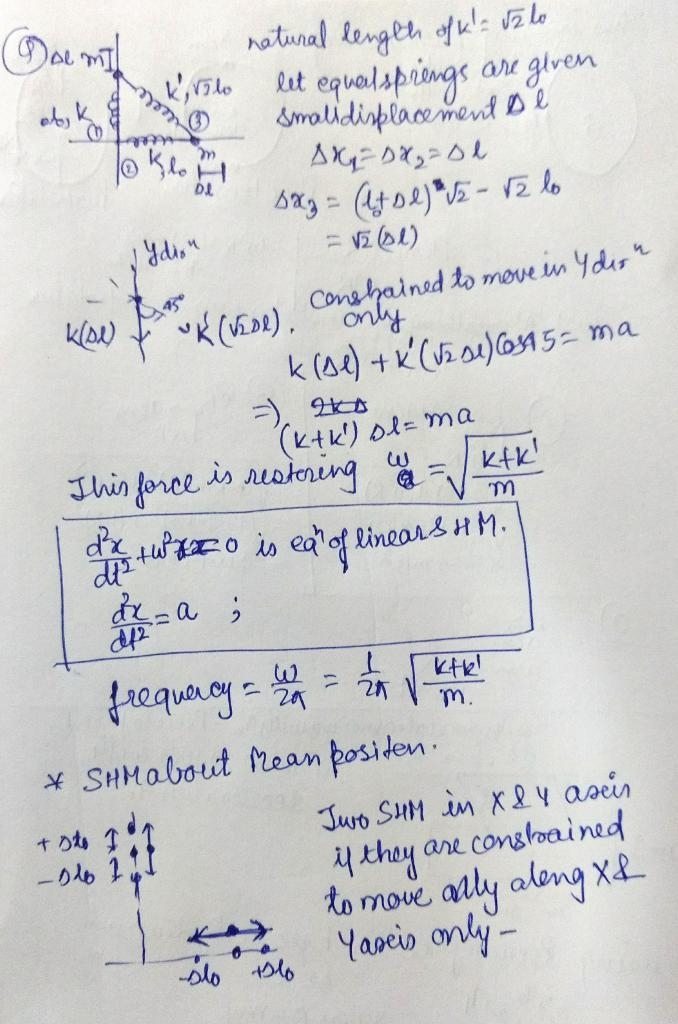 natural length of k' = √2 l₀
① Δl m
k', √2 l₀
let equal springs are given
k ① ③
small displacement Δl
② k, l₀ m
Δl
Δx₁ = Δx₂ = Δl
Δx₃ = (l₀+Δl)√2 - √2 l₀
= √2 (Δl)
y dirⁿ
45°
k(Δl) k'(√2Δl).
constrained to move in y dirⁿ
only
k(Δl) + k'(√2Δl)Cos45 = ma
⇒
(k+k')Δl = ma
This force is restoring ω = √(k+k'/m)
d²x/dt² + ω²x = 0 is eqⁿ of linear SHM.
d²x/dt² = a ;
frequency = ω/2π = 1/2π √(k+k'/m).
* SHM about Mean positen.
Two SHM in X & Y axis
+Δl₀
if they are constrained
-Δl₀
to move only along X &
Y axis only -
-Δl₀ +Δl₀